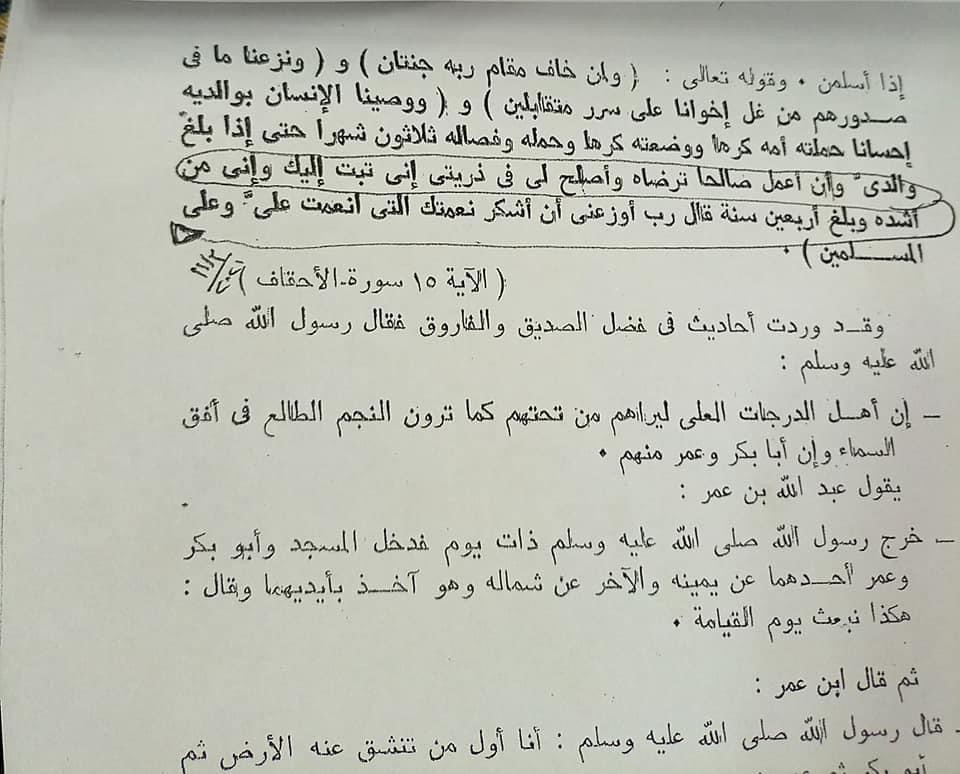 إذا أسلمن . وقوله تعالى : ( وان خاف مقام ربه جنتان ) و ( ونزعنا ما فى
صدورهم من غل إخوانا على سرر متقابلين ) و ( ووصينا الإنسان بوالديه
إحسانا حملته أمه كرها ووضعته كرها وحمله وفصاله ثلاثون شهرا حتى إذا بلغ
والدى وأن أعمل صالحا ترضاه وأصلح لى فى ذريتى إنى تبت إليك وإنى من
أشده وبلغ أربعين سنة قال رب أوزعنى أن أشكر نعمتك التى انعمت على وعلى
المسلمين ) .
( الآية ١٥ سورة الأحقاف )
وقد وردت أحاديث فى فضل الصديق والفاروق فقال رسول الله صلى
الله عليه وسلم :
– إن أهل الدرجات العلى ليراهم من تحتهم كما ترون النجم الطالع فى أفق
السماء وإن أبا بكر وعمر منهم .
يقول عبد الله بن عمر :
– خرج رسول الله صلى الله عليه وسلم ذات يوم فدخل المسجد وأبو بكر
وعمر أحدهما عن يمينه والآخر عن شماله وهو آخذ بأيديهما وقال :
هكذا نبعث يوم القيامة .
ثم قال ابن عمر :
– قال رسول الله صلى الله عليه وسلم : أنا أول من تنشق عنه الأرض ثم